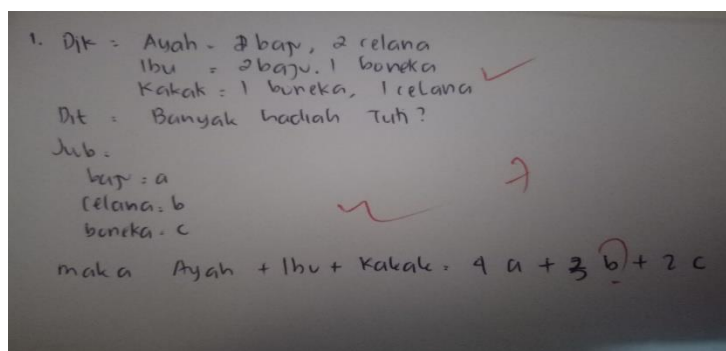 1. Dik = Ayah = 2 baju, 2 celana
Ibu = 2 baju. 1 boneka
Kakak = 1 buneka, 1 celana
Dit = Banyak hadiah Tuh?
Jwb =
baju = a
celana = b
boneka = c
7
maka Ayah + Ibu + Kakak = 4 a + 3 b + 2 c